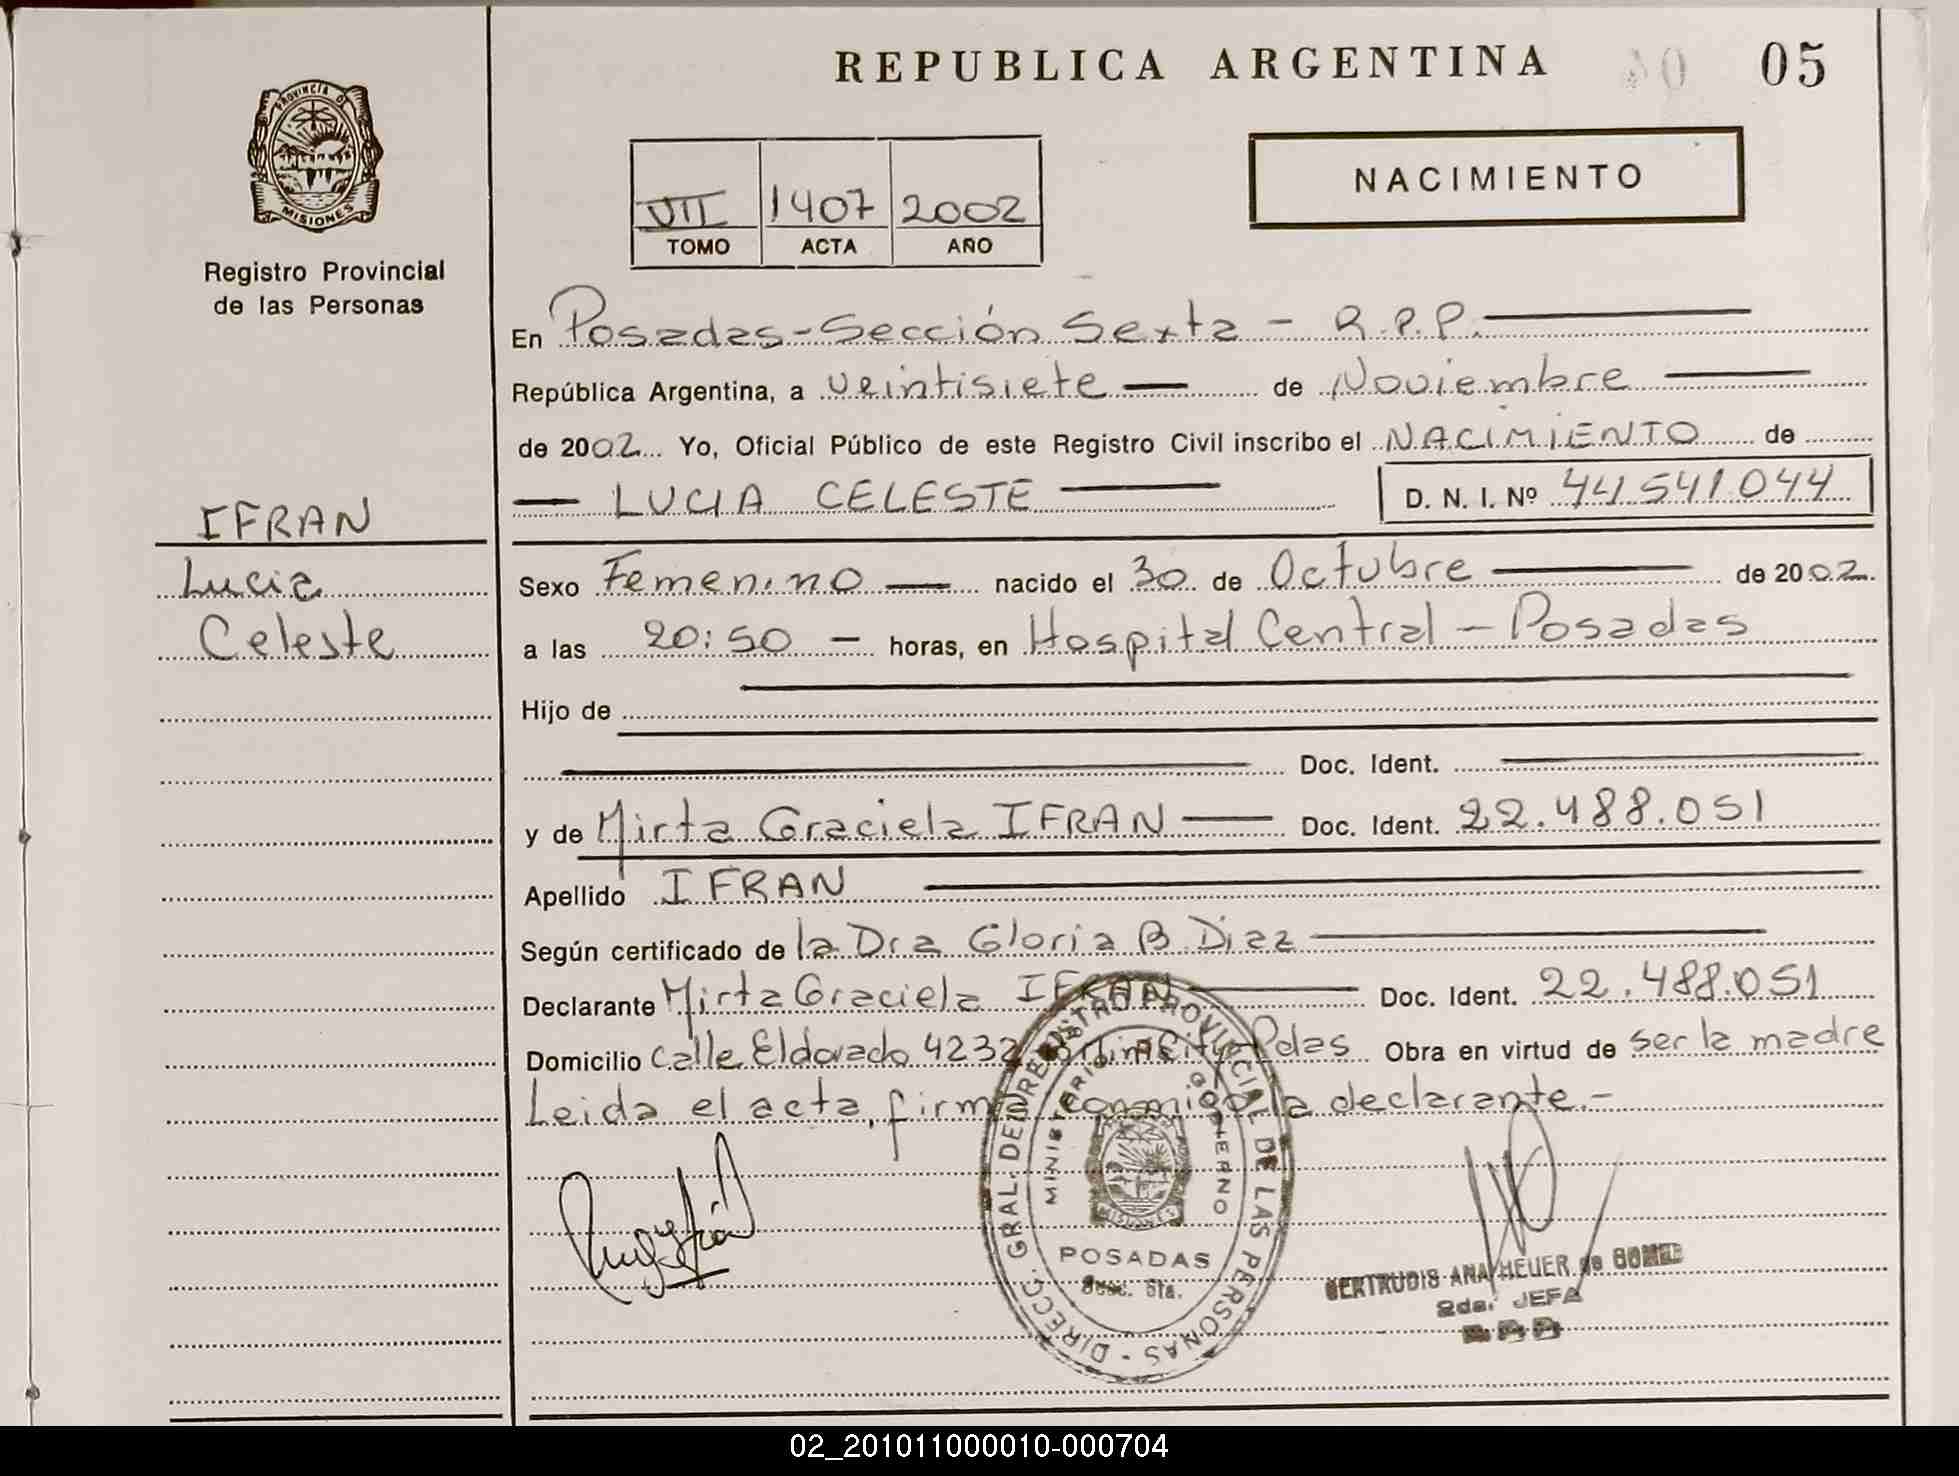 REPUBLICA ARGENTINA
05
PROVINCIA DE
MISIONES
Registro Provincial
de las Personas
VII 1407 2002
TOMO ACTA AÑO
NACIMIENTO
En Posadas-Sección Sexta - R.P.P.
República Argentina, a veintisiete de Noviembre
de 2002 Yo, Oficial Público de este Registro Civil inscribo el NACIMIENTO de
LUCIA CELESTE D. N. I. Nº 44541044
IFRAN
Lucia
Celeste
Sexo Femenino nacido el 30 de Octubre de 2002
a las 20:50 - horas, en Hospital Central - Posadas
Hijo de
Doc. Ident.
y de Mirta Graciela IFRAN Doc. Ident. 22.488.051
Apellido IFRAN
Según certificado de la Dra Gloria B. Diaz
Declarante Mirta Graciela IFRAN Doc. Ident. 22.488.051
Domicilio Calle Eldorado 4232 Pdas Obra en virtud de ser la madre
Leida el acta, firma conmigo la declarante.-
DIRECC. GRAL. DEL REGISTRO PROVINCIAL DE LAS PERSONAS -
MINISTERIO GOBIERNO
MISIONES
POSADAS
Secc. 6ta.
GERTRUDIS ANA HEUER de GOMEZ
2da. JEFA
02_201011000010-000704